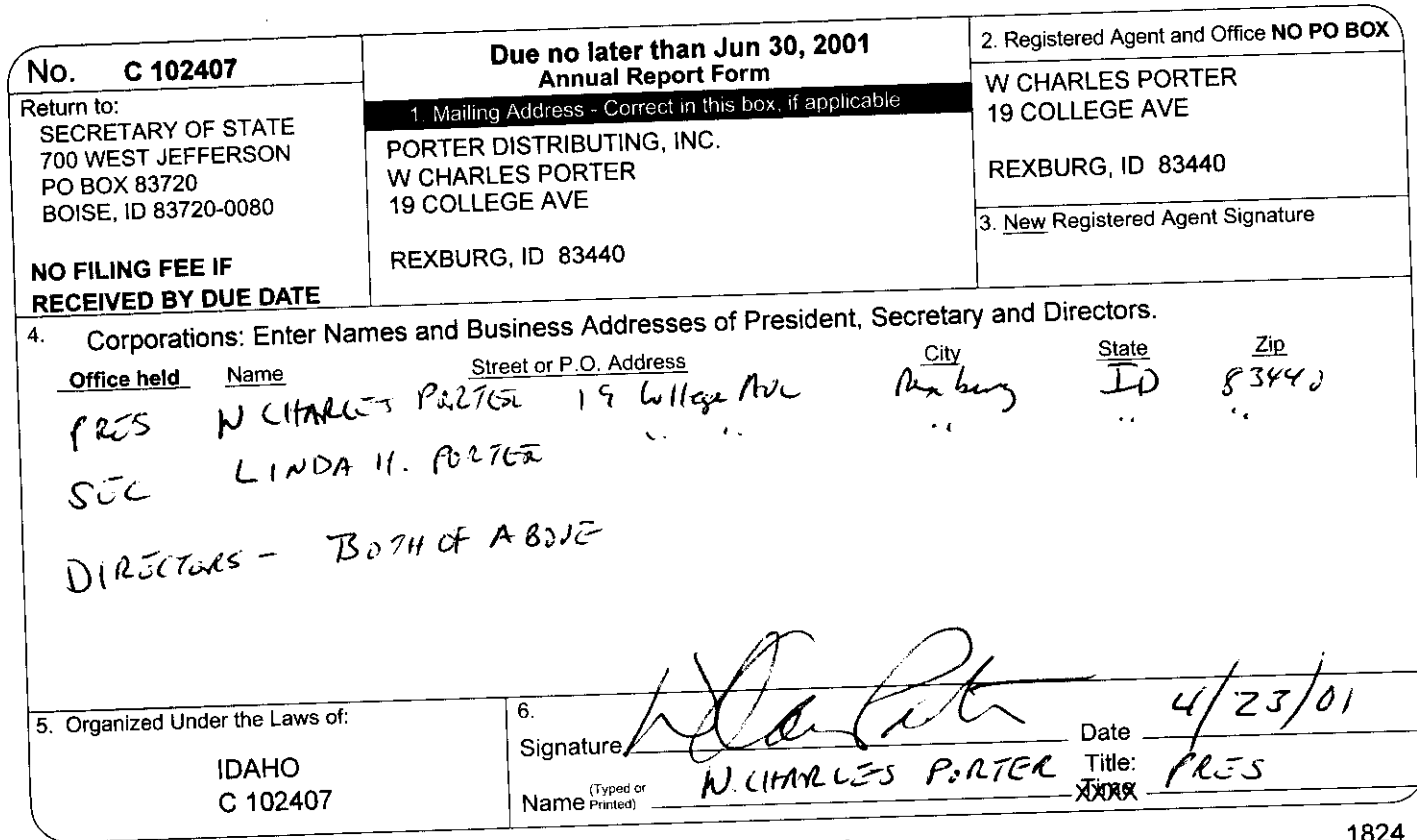 No. C 102407
Return to:
SECRETARY OF STATE
700 WEST JEFFERSON
PO BOX 83720
BOISE, ID 83720-0080
NO FILING FEE IF
RECEIVED BY DUE DATE
Due no later than Jun 30, 2001
Annual Report Form
1. Mailing Address - Correct in this box, if applicable
PORTER DISTRIBUTING, INC.
W CHARLES PORTER
19 COLLEGE AVE
REXBURG, ID 83440
2. Registered Agent and Office NO PO BOX
W CHARLES PORTER
19 COLLEGE AVE
REXBURG, ID 83440
3. New Registered Agent Signature
4. Corporations: Enter Names and Business Addresses of President, Secretary and Directors.
Office held Name Street or P.O. Address City State Zip
PRES W CHARLES PORTER 19 College Ave Rexburg ID 83440
SEC LINDA H. PORTER " " " " "
DIRECTORS - BOTH OF ABOVE
5. Organized Under the Laws of:
IDAHO
C 102407
6.
Signature Date 4/23/01
Name (Typed or Printed) W. CHARLES PORTER Title: PRES
1824